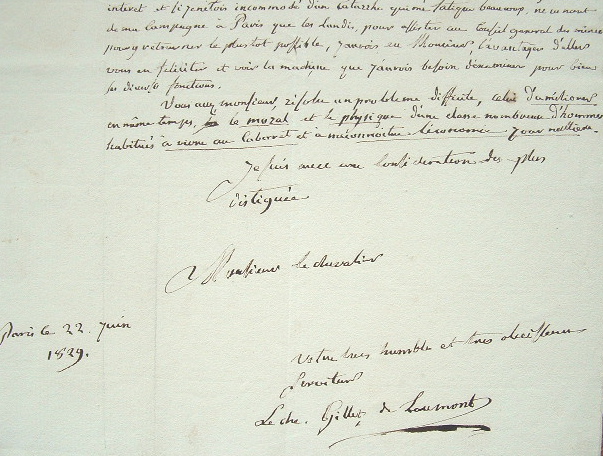 interet et si j'etois incommodé d'un catarrhe qui me fatigue beaucoup, ne venant
de ma campagne à Paris que les lundis, pour assister au Conseil general des mines
pour y retourner le plustot possible, j'aurois eu Monsieur, l'avantage d'aller
vous en feliciter et voir la machine que j'aurois besoin d'examiner pour bien
ses diverses fonctions.
Vous avez monsieur résolu un probleme difficile, celui d'améliorer
en même temps, le moral et le physique d'une classe nombreuse d'hommes
habitués à vivre au cabaret et à méconnoitre l'économie
Je suis avec une consideration des plus
distiguée
Monsieur le chevalier
Paris le 22. juin
1829.
Votre tres humble et tres obeissant
Serviteur
Le che. Gillet de Laumont